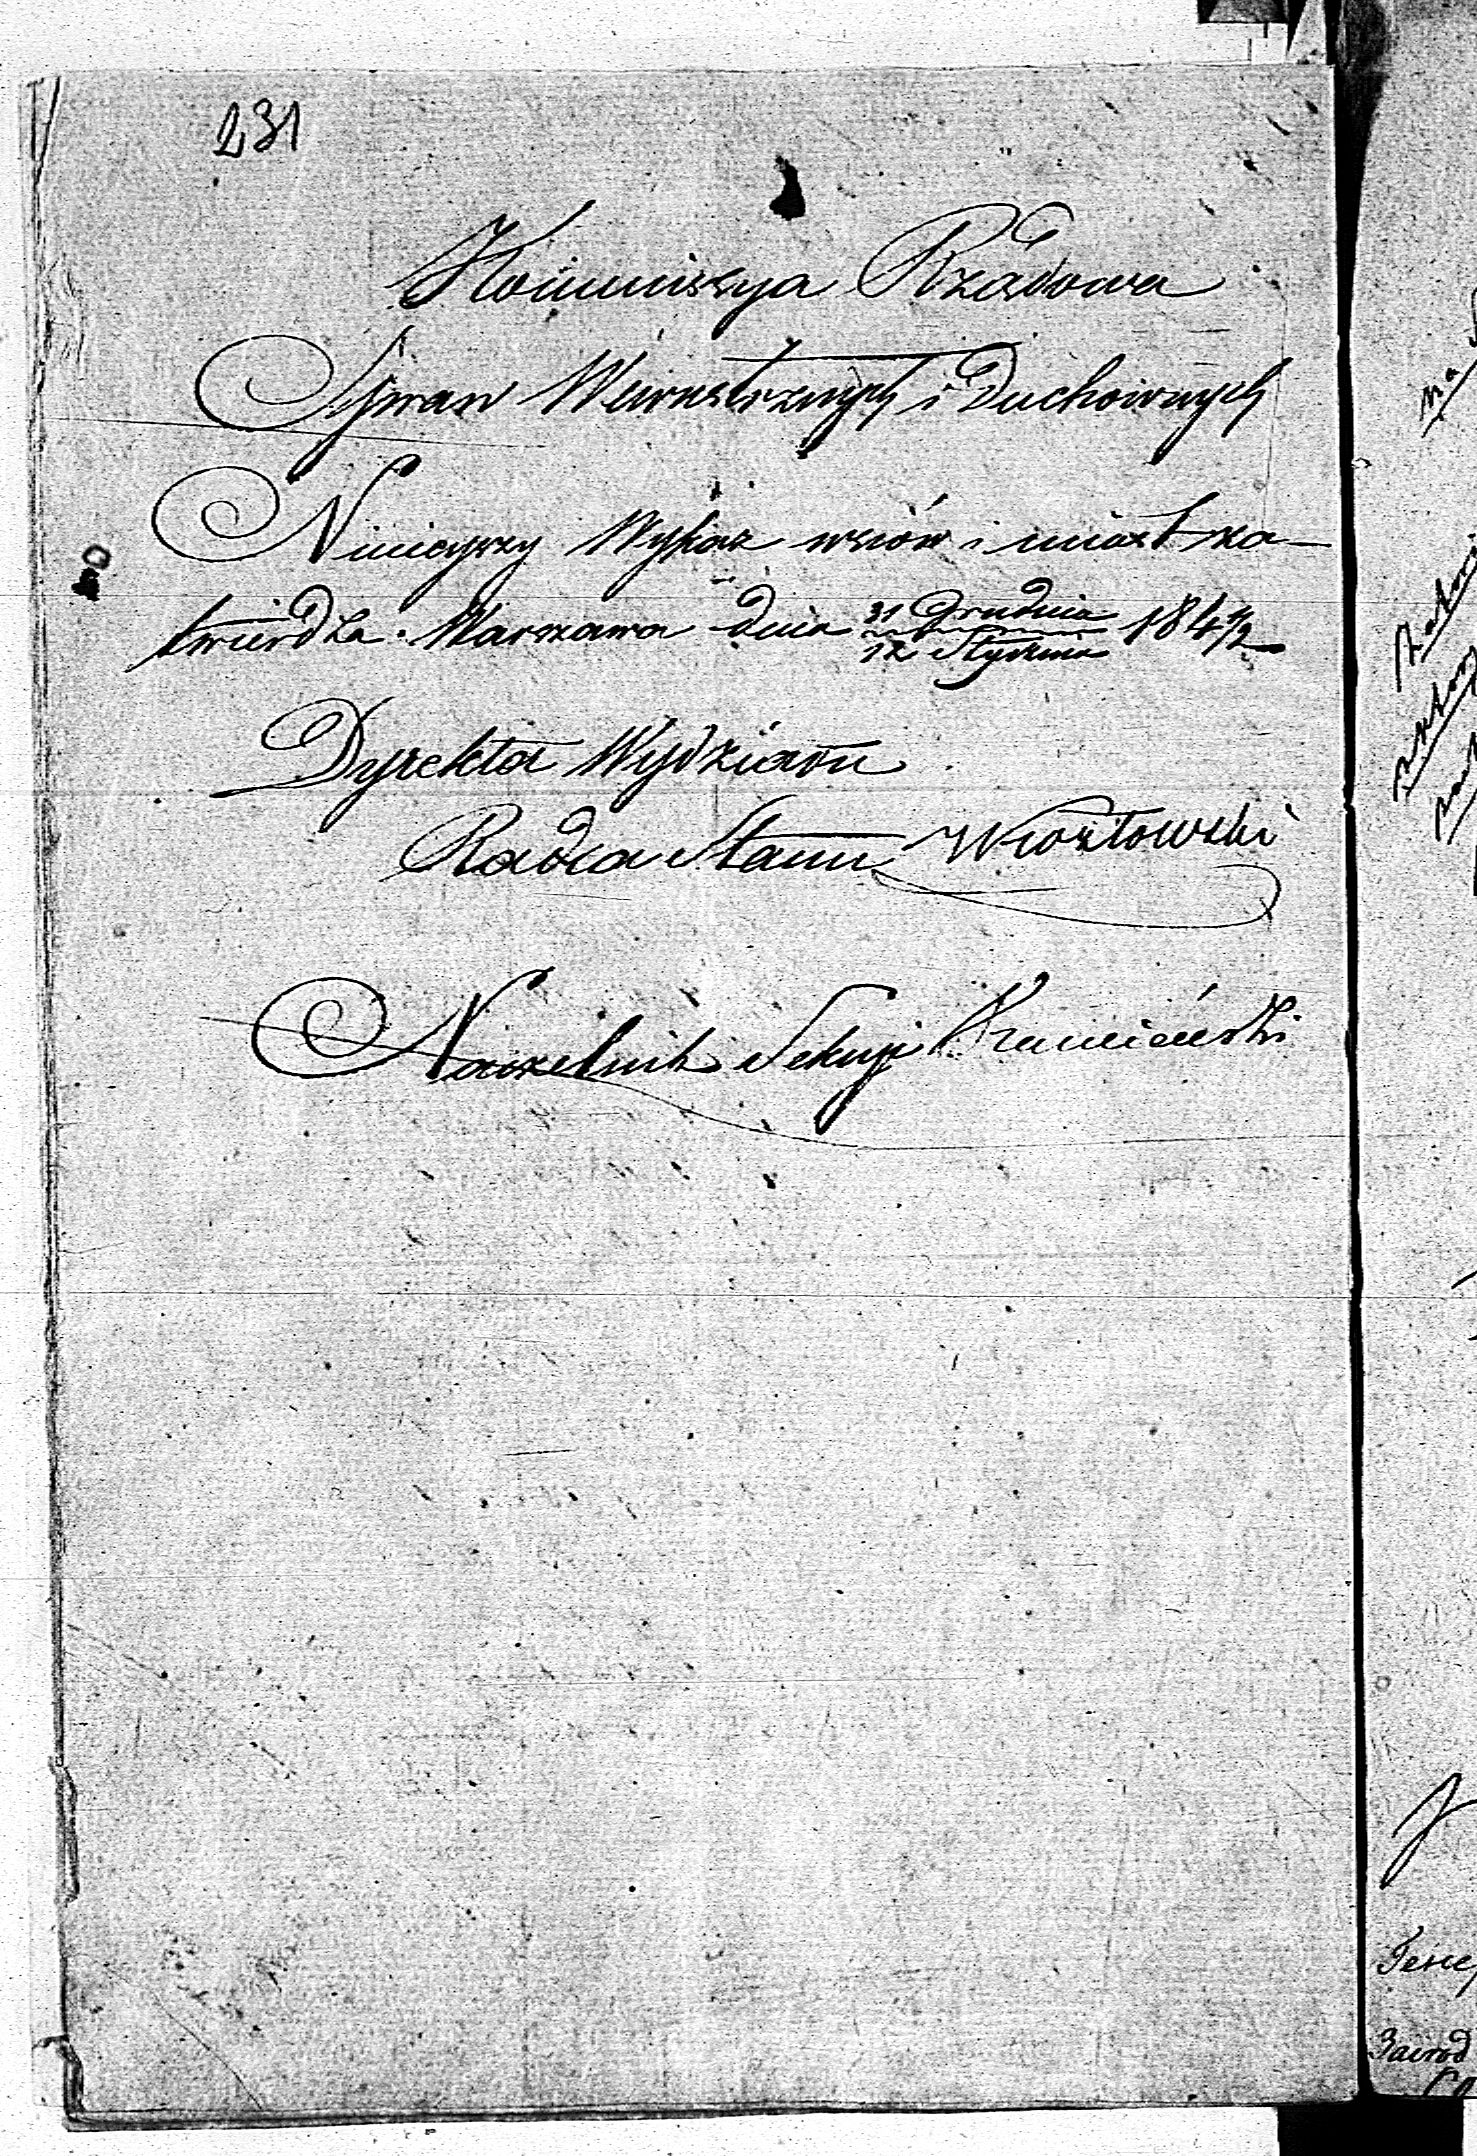 231
Kommissya Rządowa
Spraw Wewnętrznych i Duchownych
Ninieyszy Wykaz wsiów i miast za-
twierdza. Warszawa dnia 31 Grudnia / 12 Stycznia 184 1/2
Dyrektor Wydziału
Radca Stanu
Naczelnik Sekcyi